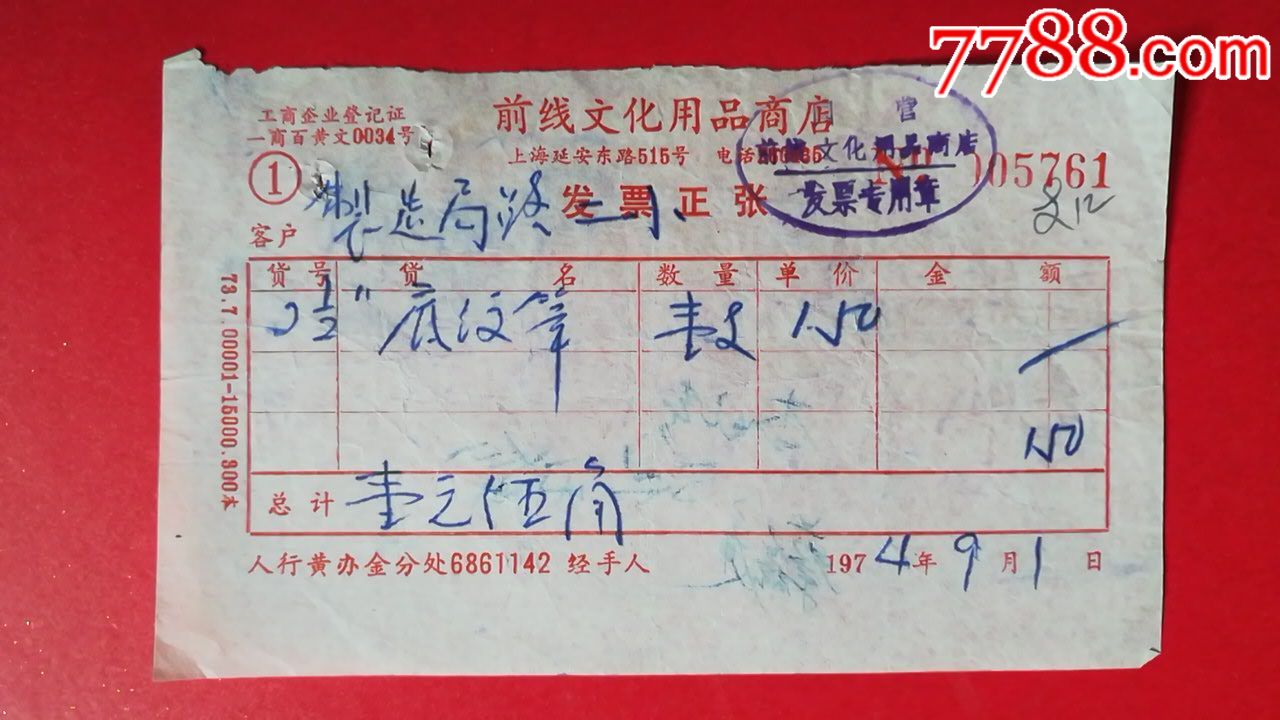 7788.com
工商企业登记证
一商百黄文0034号
前线文化用品商店
上海延安东路515号 电话
国营
前线文化用品商店
发票专用章
No 005761
①
发票正张
客户 製造局路二小
货号 货名 数量 单价 金额
2½" 底纹笔 壹支 1.50
1.50
总计 壹元伍角
人行黄办金分处6861142 经手人
1974年9月1日
73.7.00001-15000.300本